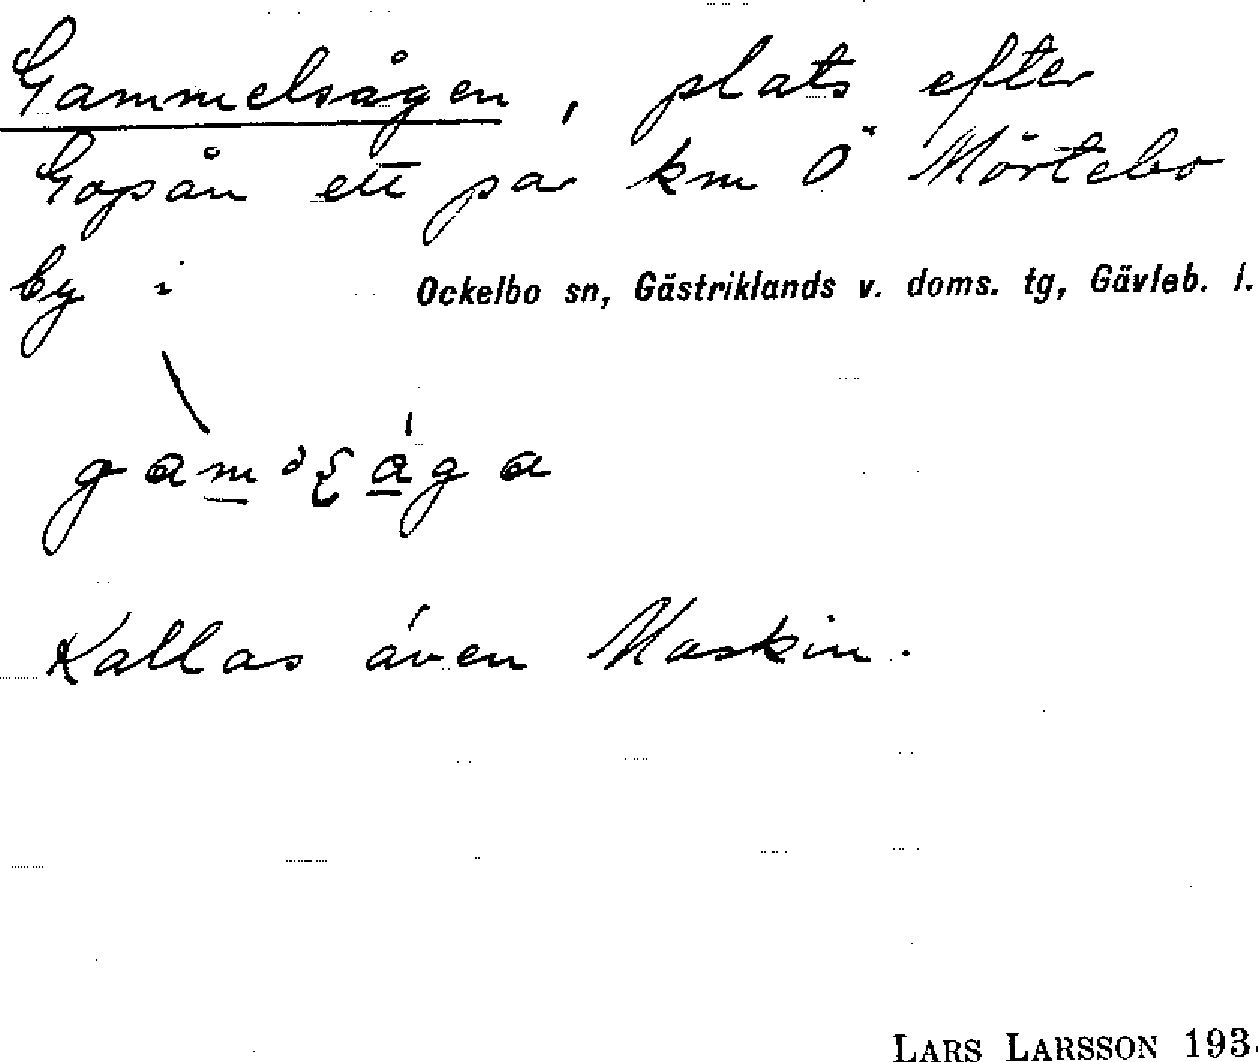 Gammelsågen, plats efter
Gopån ett par km Ö Mörtebo
by i Ockelbo sn, Gästriklands v. doms. tg, Gävleb. l.
Kallas även Maskin.
LARS LARSSON 193